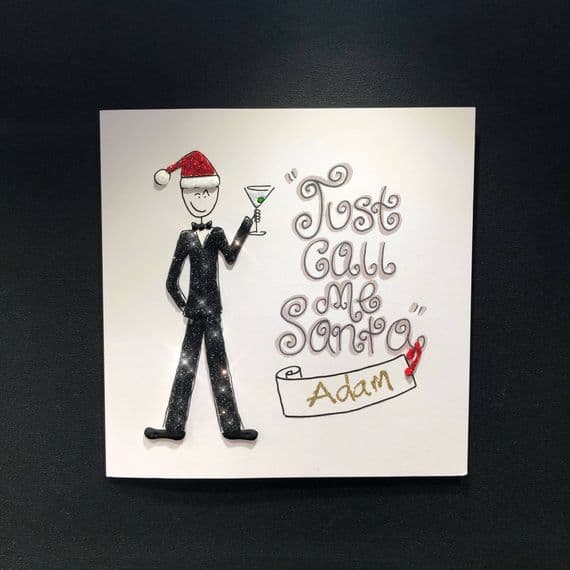 "Just
Call
Me
Santa"
Adam